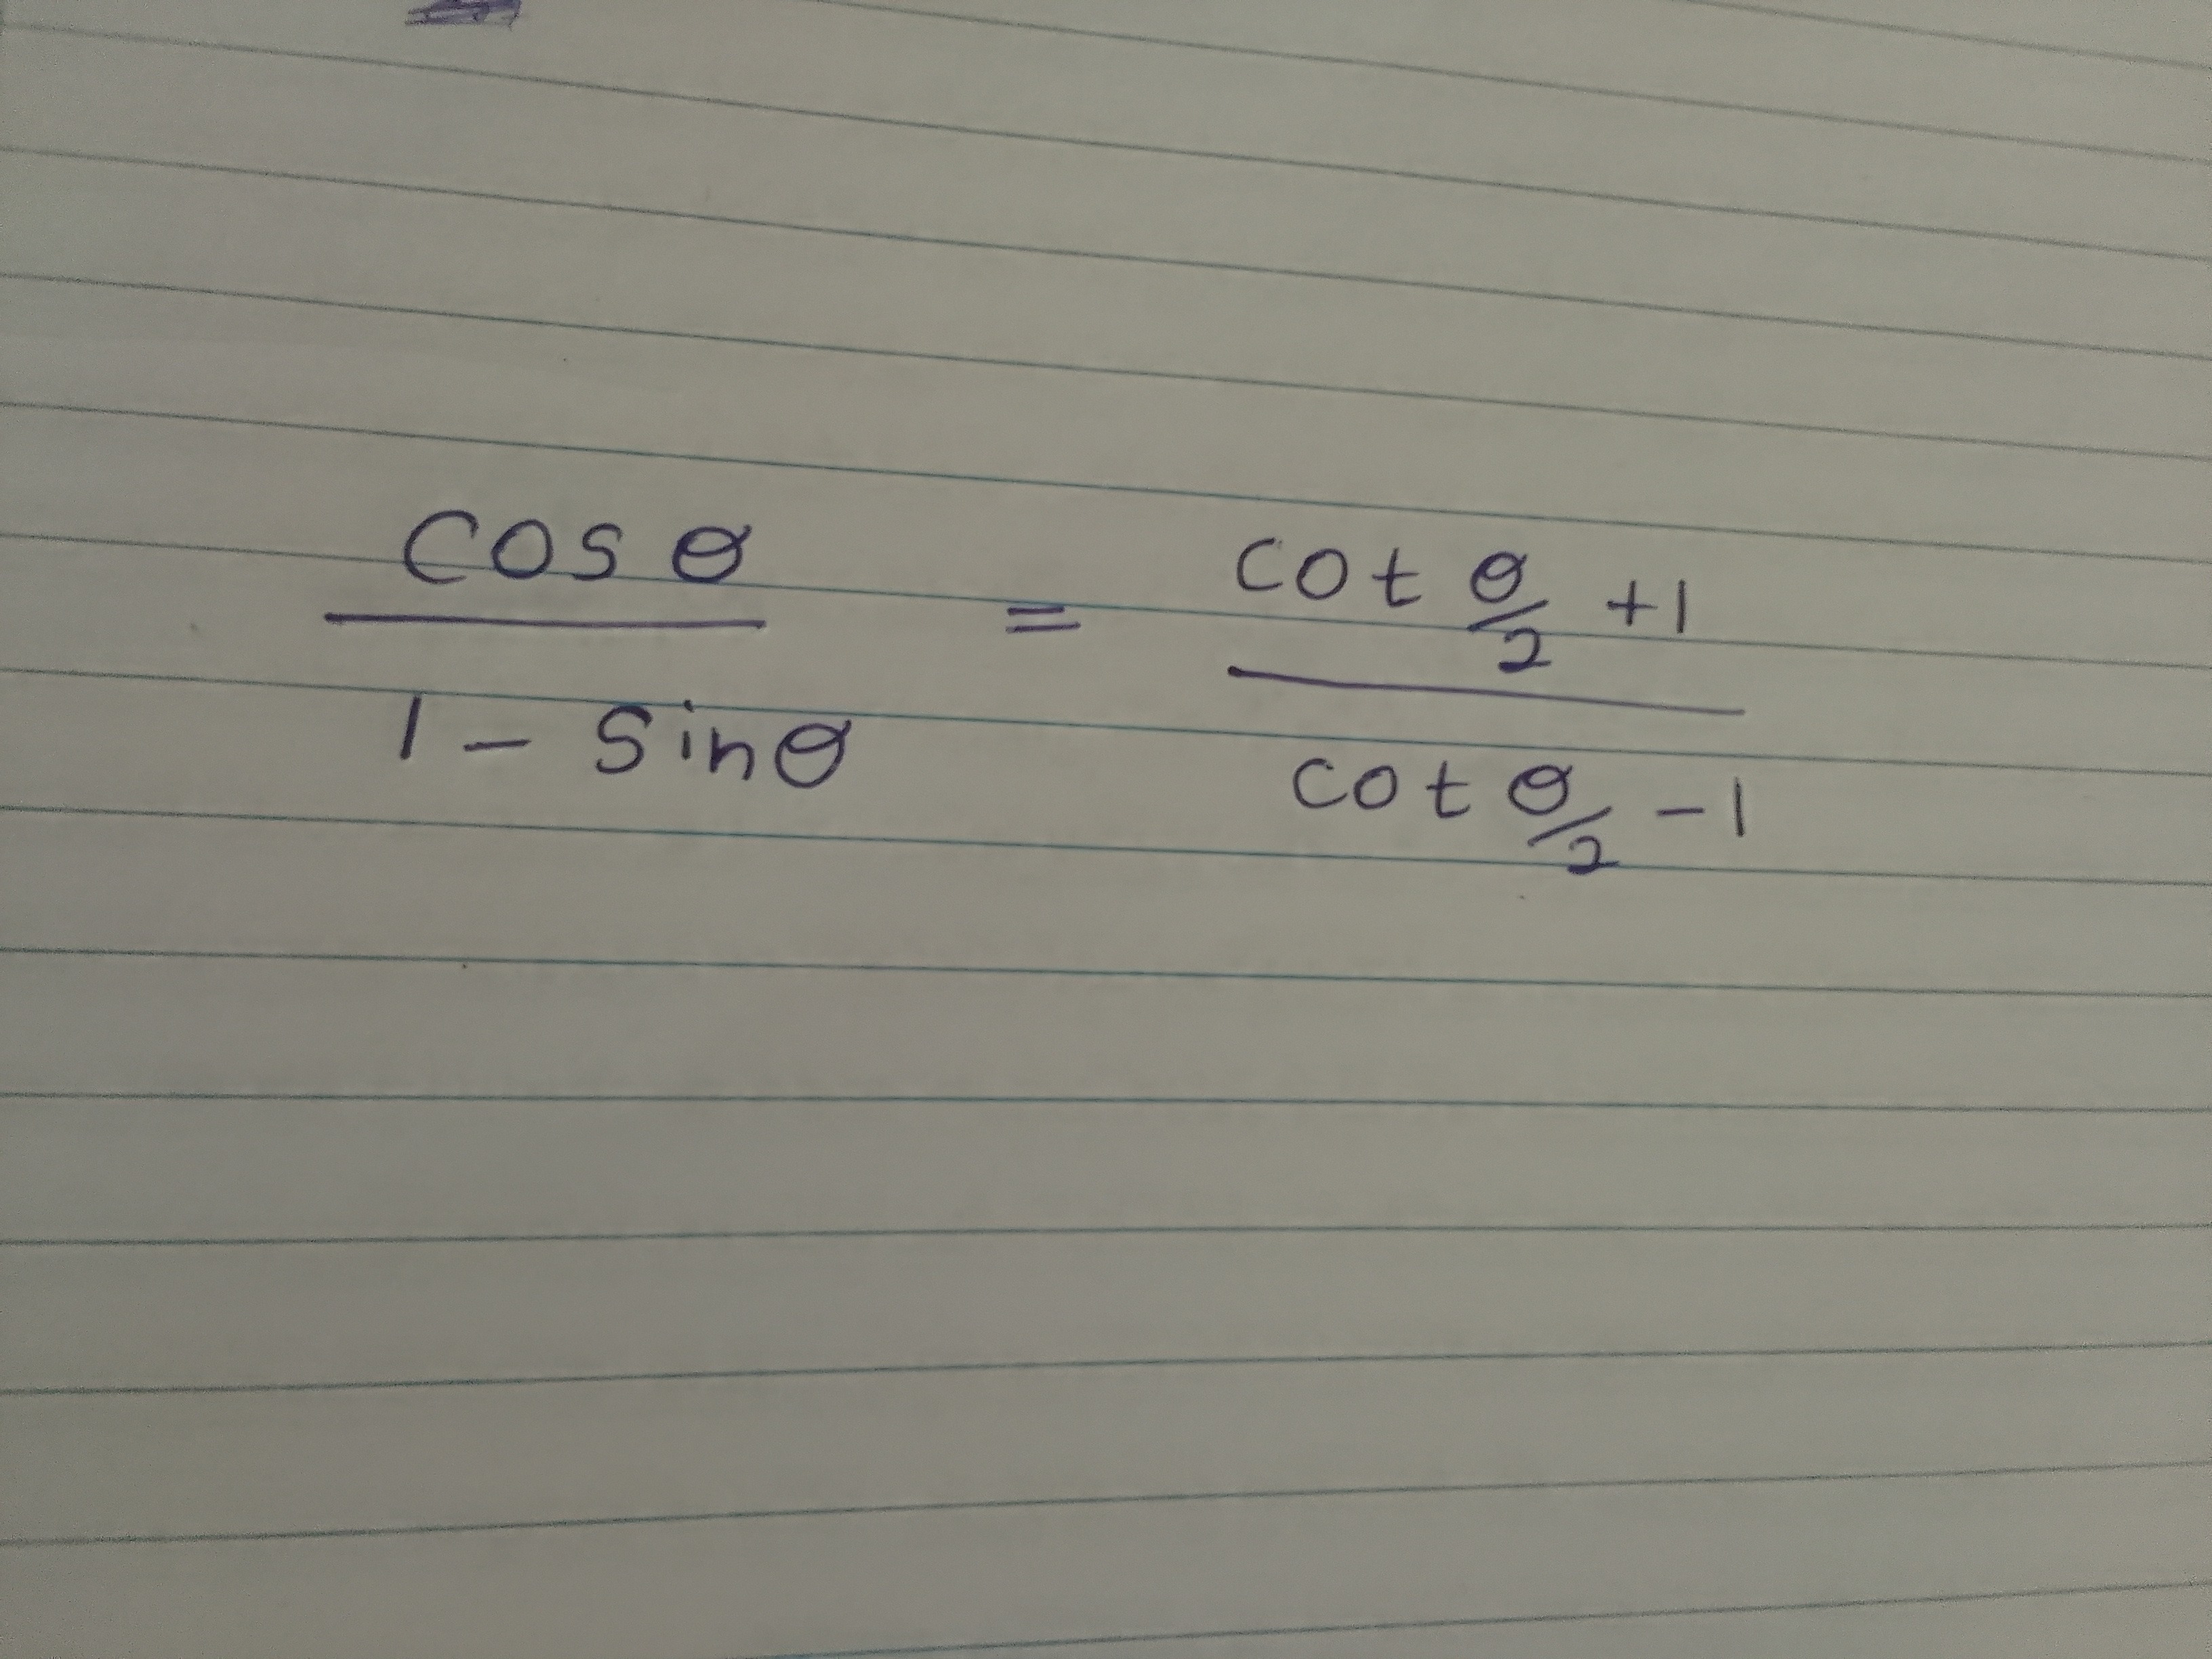 cos θ / 1 - sinθ = cot θ/2 + 1 / cot θ/2 - 1